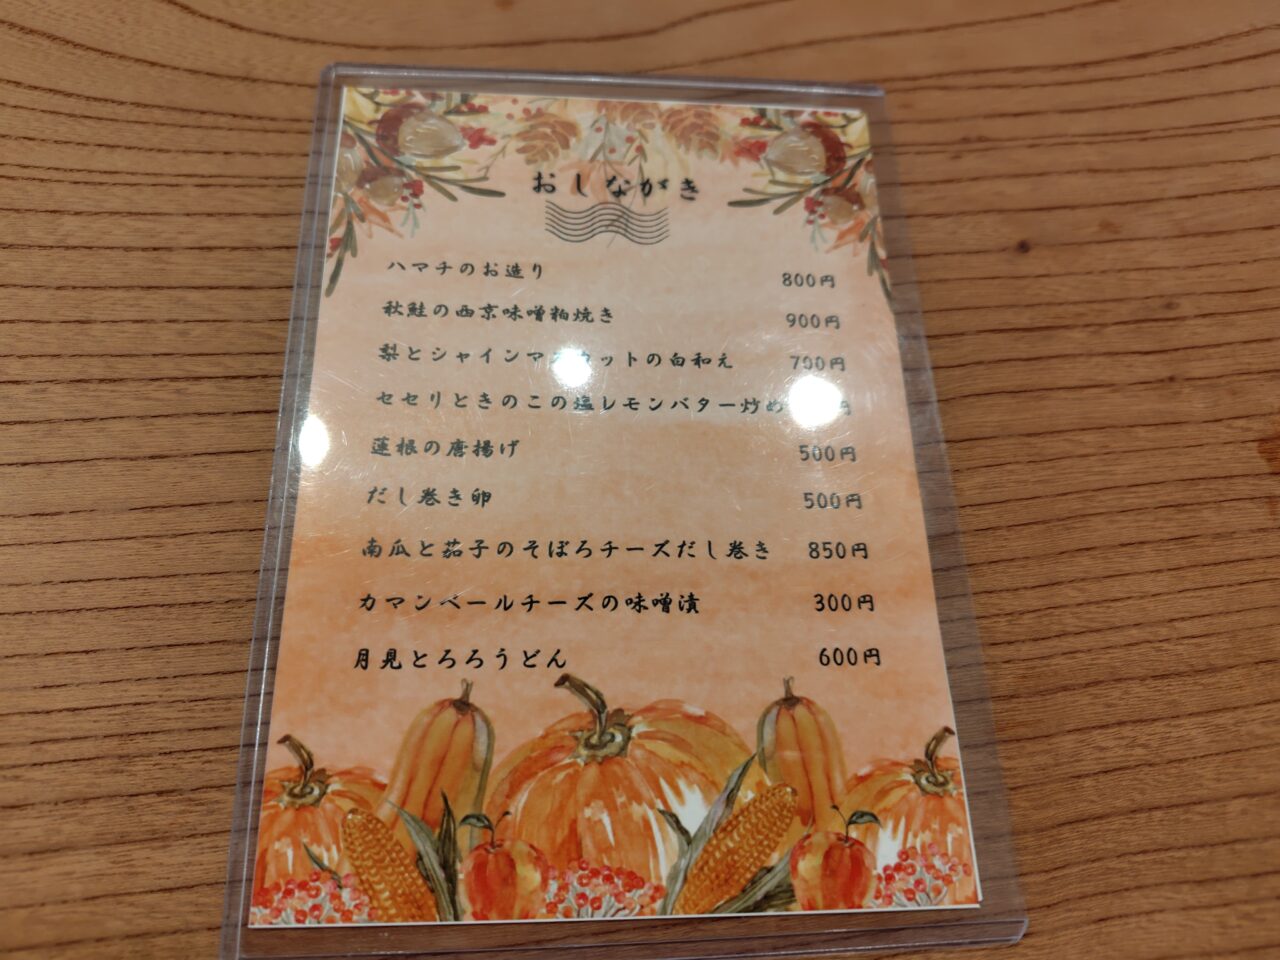 おしながき
ハマチのお造り 800円
秋鮭の西京味噌粕焼き 900円
梨とシャインマスカットの白和え 700円
セセリときのこの塩レモンバター炒め 円
蓮根の唐揚げ 500円
だし巻き卵 500円
南瓜と茄子のそぼろチーズだし巻き 850円
カマンベールチーズの味噌漬 300円
月見とろろうどん 600円